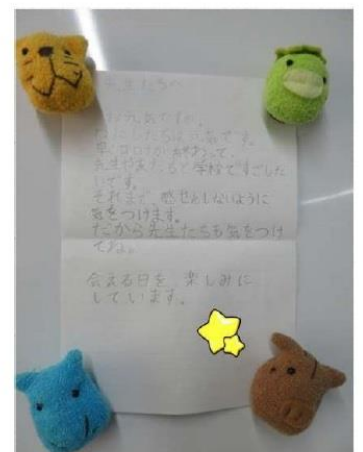 先生たちへ
お元気ですか。
わたしたちは元気です。
早くコロナがおわって、
先生や友だちと学校ですごした
いです。
それまで、感せんしないように
気をつけます。
だから先生たちも気をつけ
てね。
会える日を、楽しみに
しています。